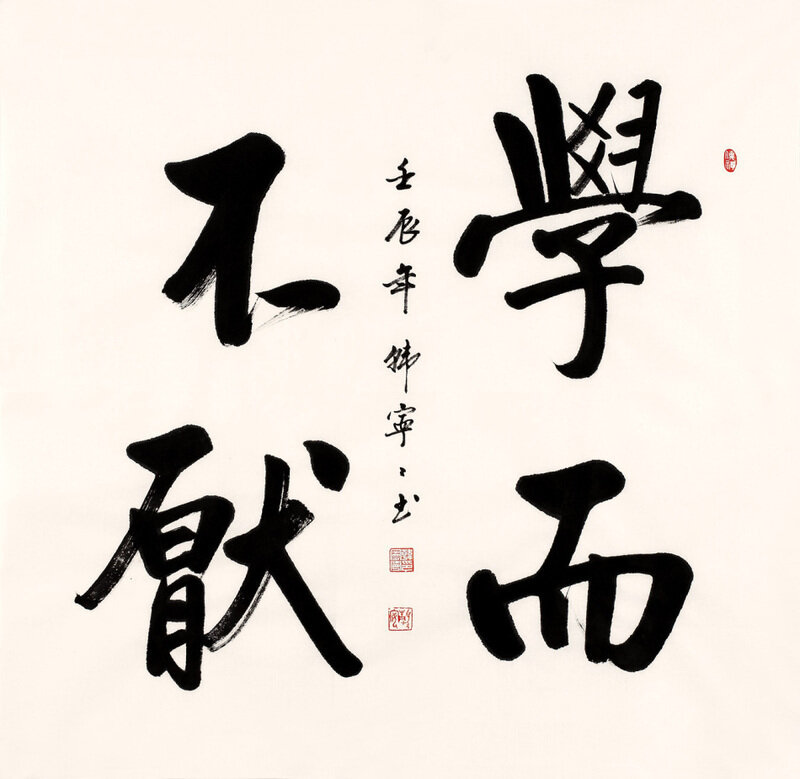 學而
不厭
壬辰年韩寧〻书